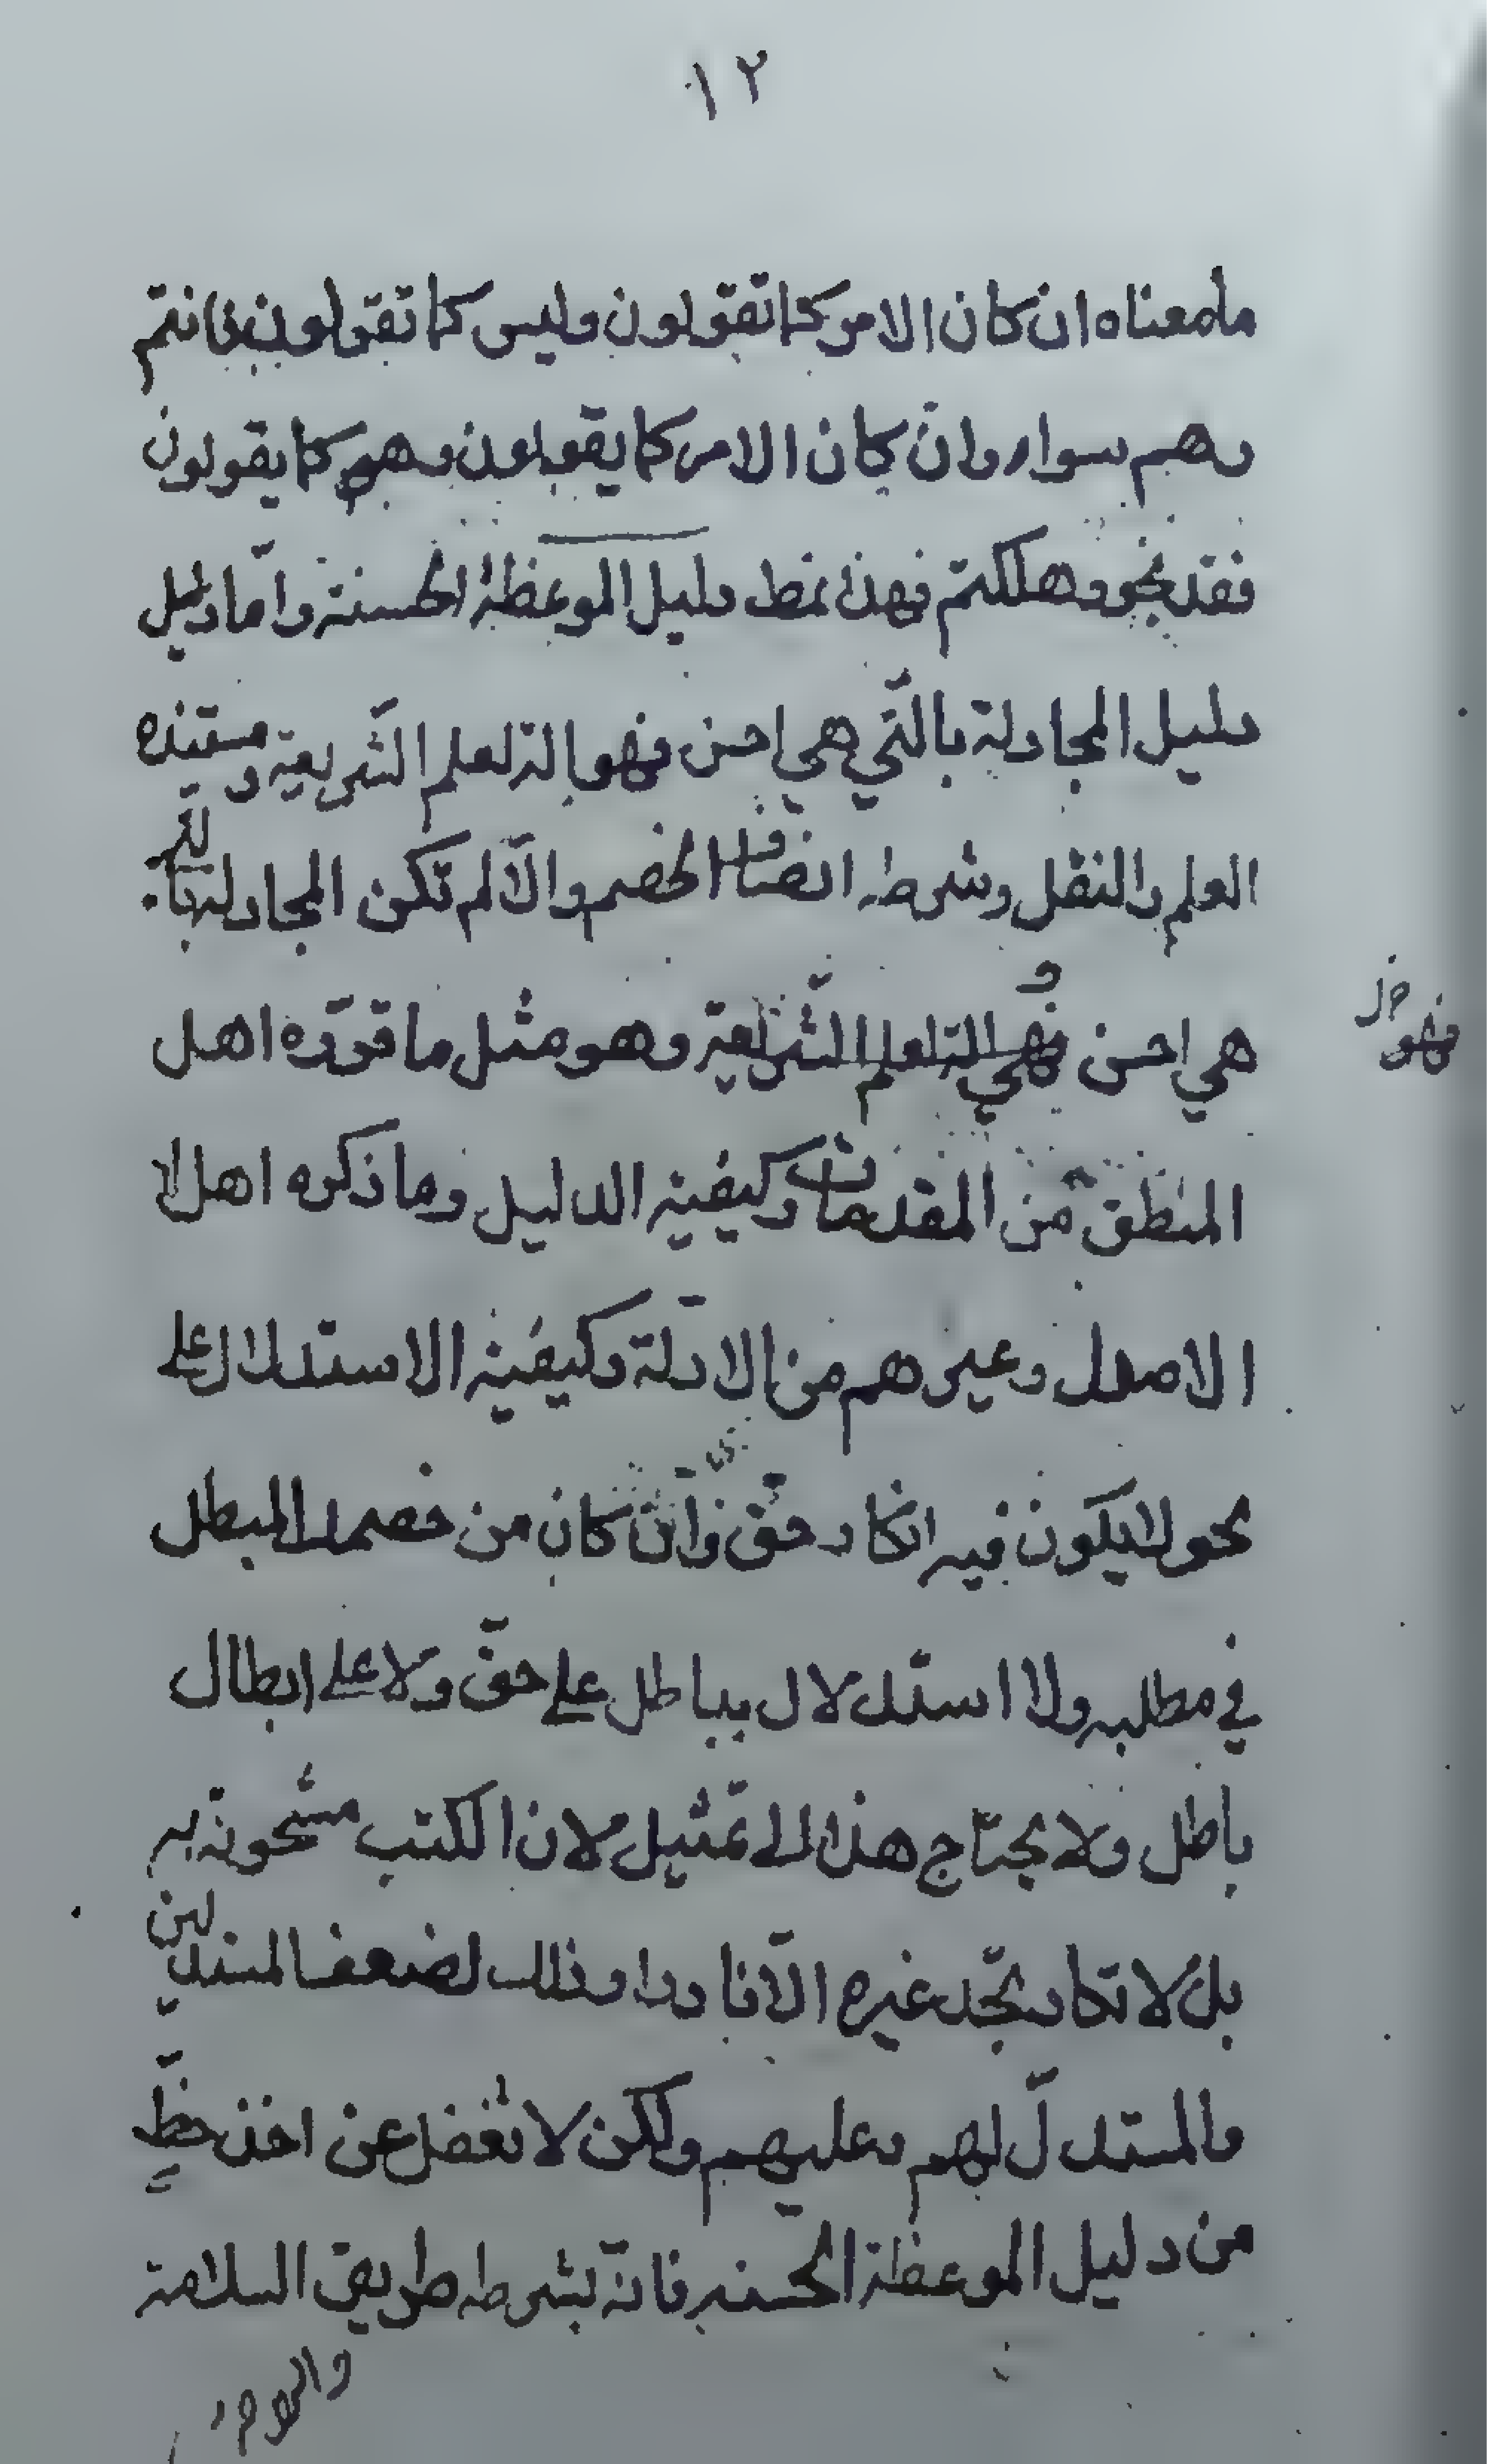 ١٢
ما معناه ان كان الامر كما تقولون وليس كما تقولون فانتم
وهم سواء وان كان الامر كما يقولون وهو كما يقولون
فقد نجوا وهلكتم فهذا نمط دليل الموعظة الحسنة وامّا دليل
دليل المجادلة بالتّي هي احسن فهو الة لعلم الشّريعة ومستنده
العلم والنقل وشرطه انصاف الخصم والّا لم تكن المجادلة بالتي
هي احسن فهي الة لعلم الشّريعة وهو مثل ما قرّره اهل
فهو خل
المنطق من المقدمات وكيفية الدليل وما ذكره اهل
الاصول وغيرهم من الادلّة وكيفية الاستدلال على
نحو لا يكون فيه انكار حقّ وان كان من خصمك المبطل
في مطلبه ولا استدلال بباطل على حقّ ولا على ابطال
باطل ولا يحتاج هذا الى تمثيل لان الكتب مشحونة به
بل لا تكاد تجد غيره الّا نادرا وذلك لضعف المستدلين
والمستدلّ لهم وعليهم ولكن لا تغفل عن اخذ حظّ
من دليل الموعظة الحسنه فانّه بشرطه طريق السلامة